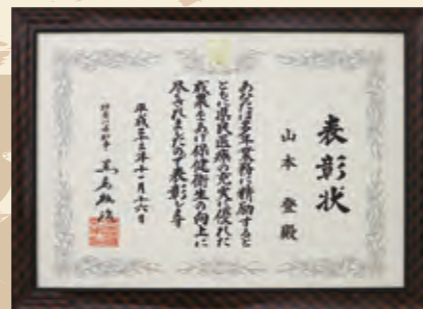 表彰状
山本 登 殿
あなたは多年業務に精励すると
ともに県民医療の充実に優れた
成果をあげ保健衛生の向上に
尽されましたので表彰します
平成二十三年十一月十六日
神奈川県知事 黒岩祐治